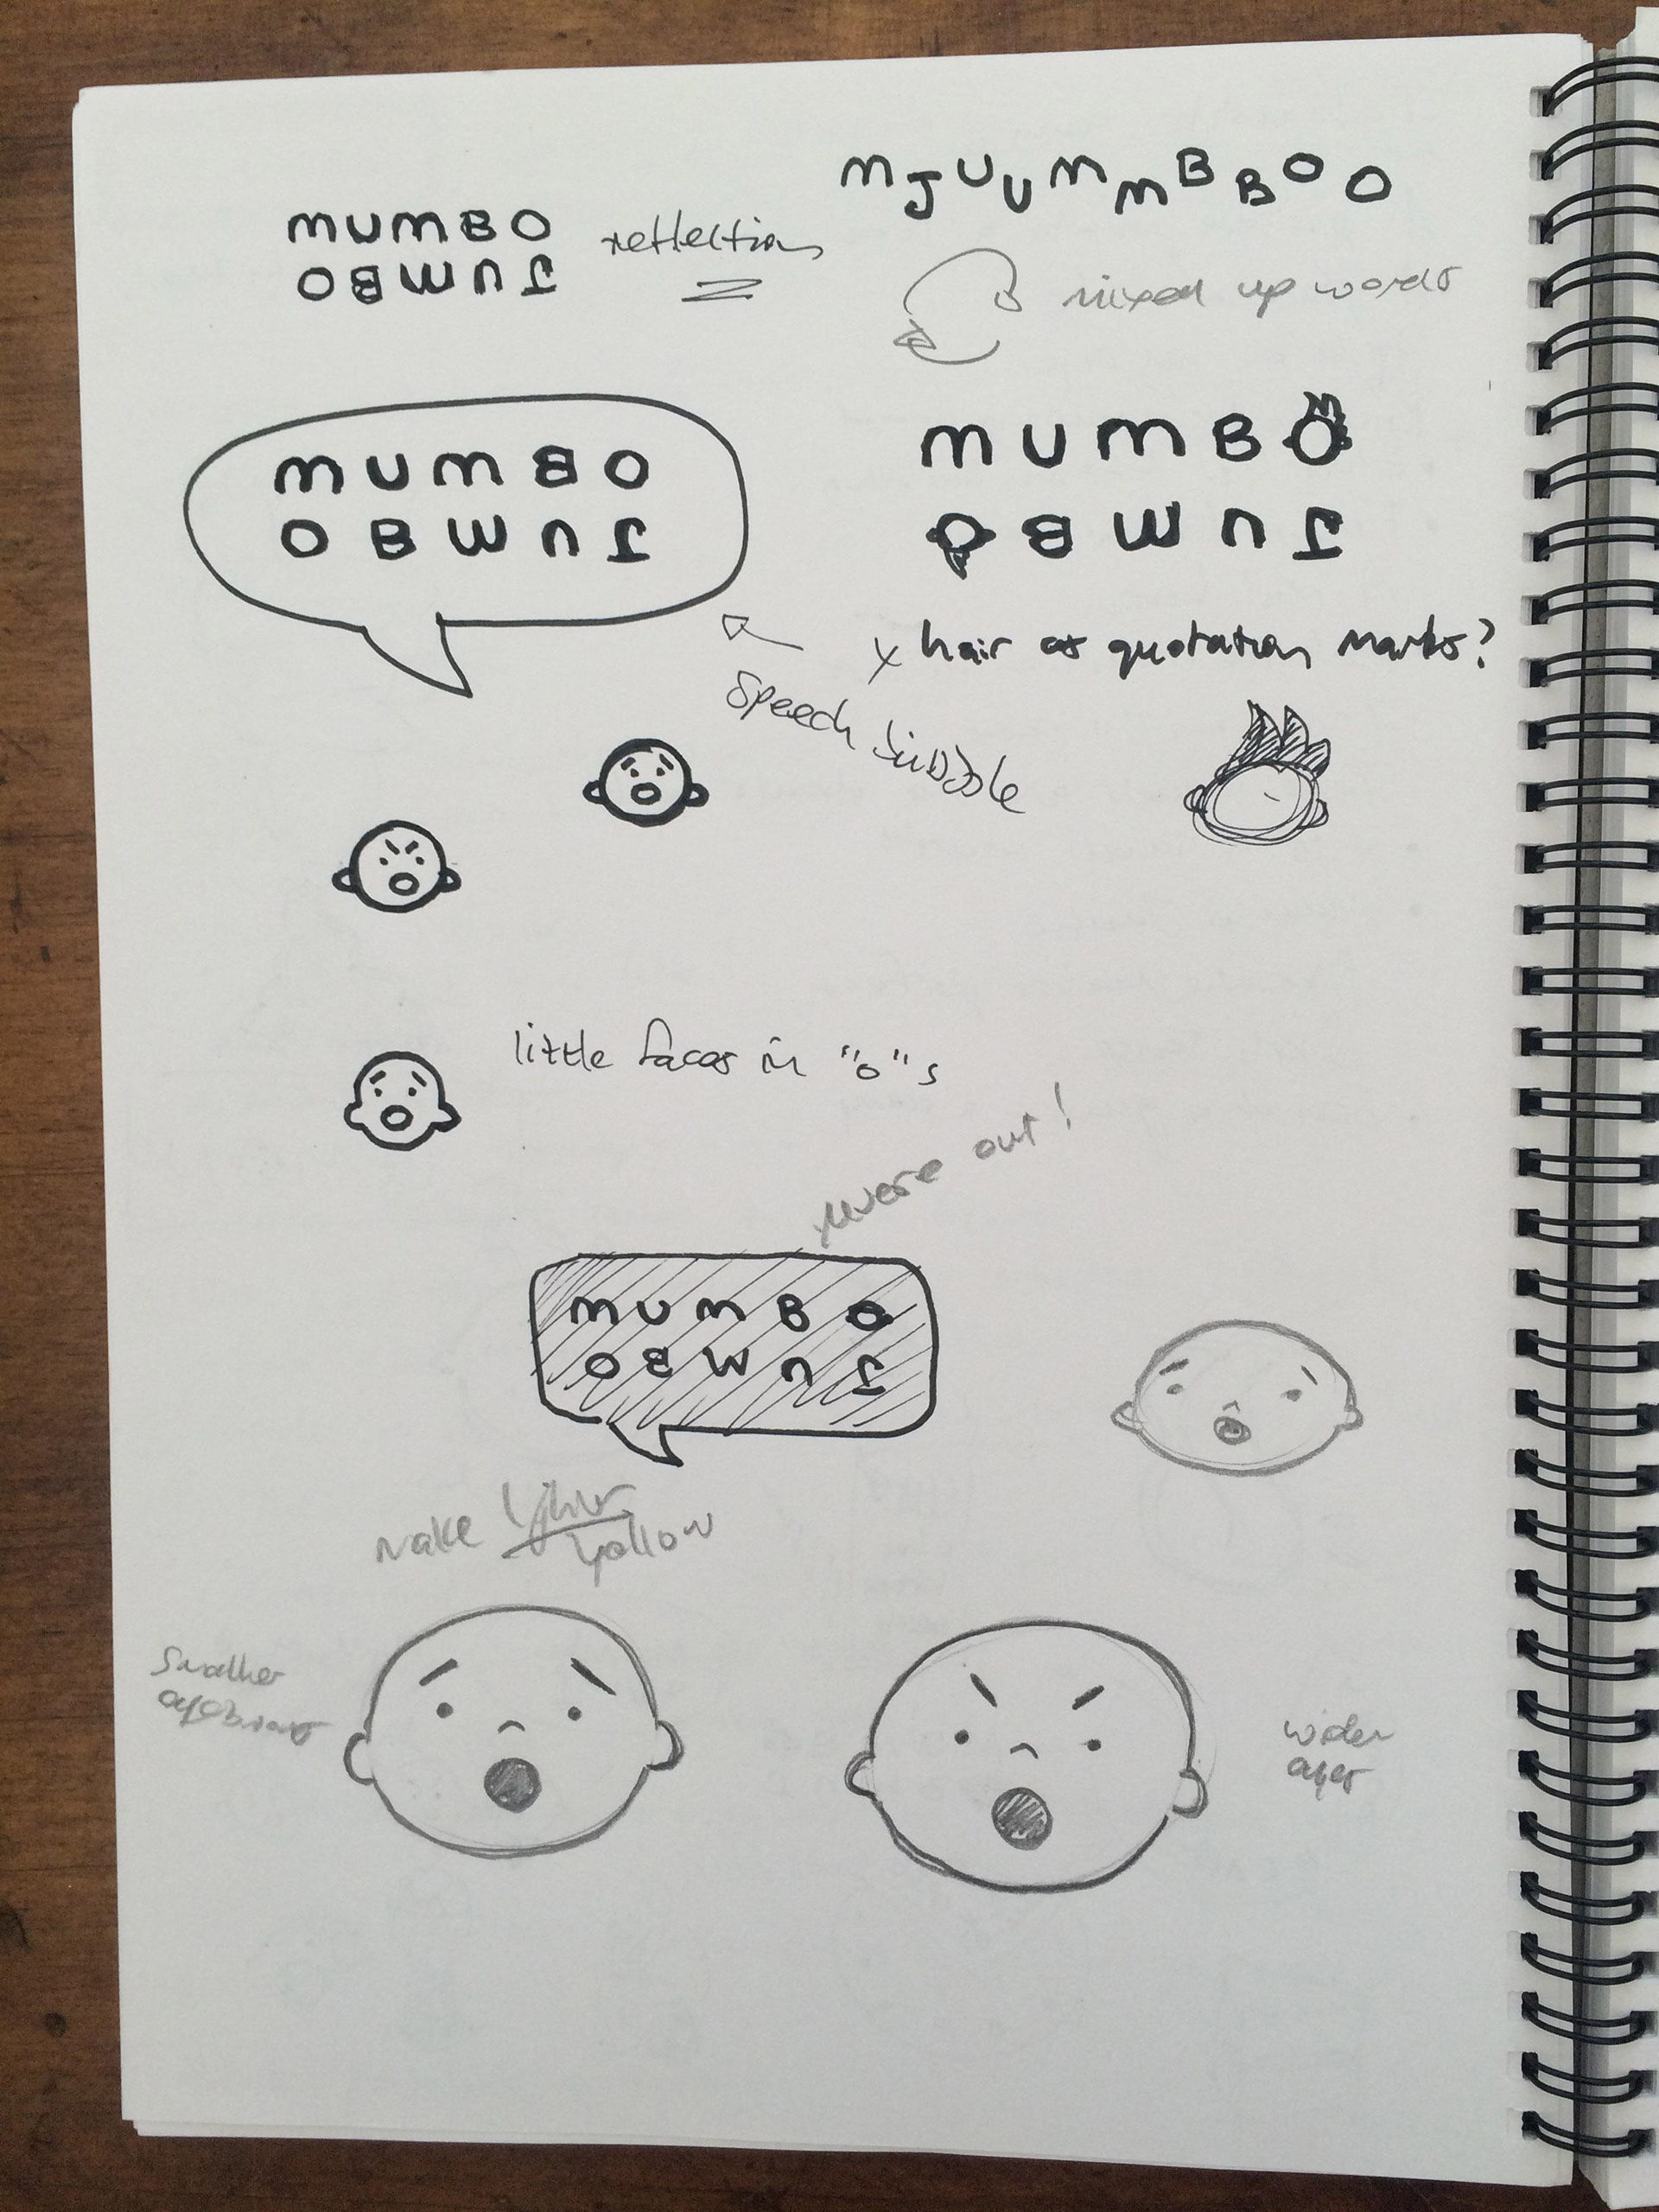 MJUUMMBBOO
MUMBO
JUMBO
reflection
mixed up words
MUMBO
JUMBO
MUMBO
JUMBO
x hair as quotation marks?
speech bubble
little faces in "o"s
reverse out!
MUMBO
JUMBO
make
yellow
smaller
eyebrows
wider
eyes